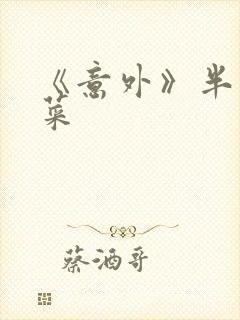 《意外》半
菜
蔡酒哥